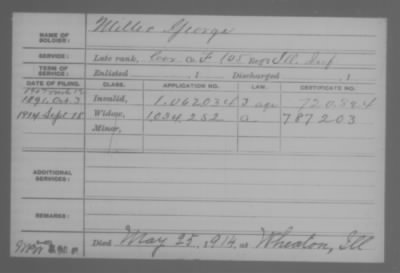 NAME OF SOLDIER: Miller George
SERVICE: Late rank, Co. F 105 Reg't Ill. Inf
TERM OF SERVICE: Enlisted , 1 Discharged , 1
DATE OF FILING. CLASS. APPLICATION NO. LAW. CERTIFICATE NO.
1891 Oct. 3 Invalid, 1,062034 720884
1914 Sept 18 Widow, 1034,252 a 787203
Minor,
ADDITIONAL SERVICES:
REMARKS:
Died May 25, 1914, at Wheaton, Ill